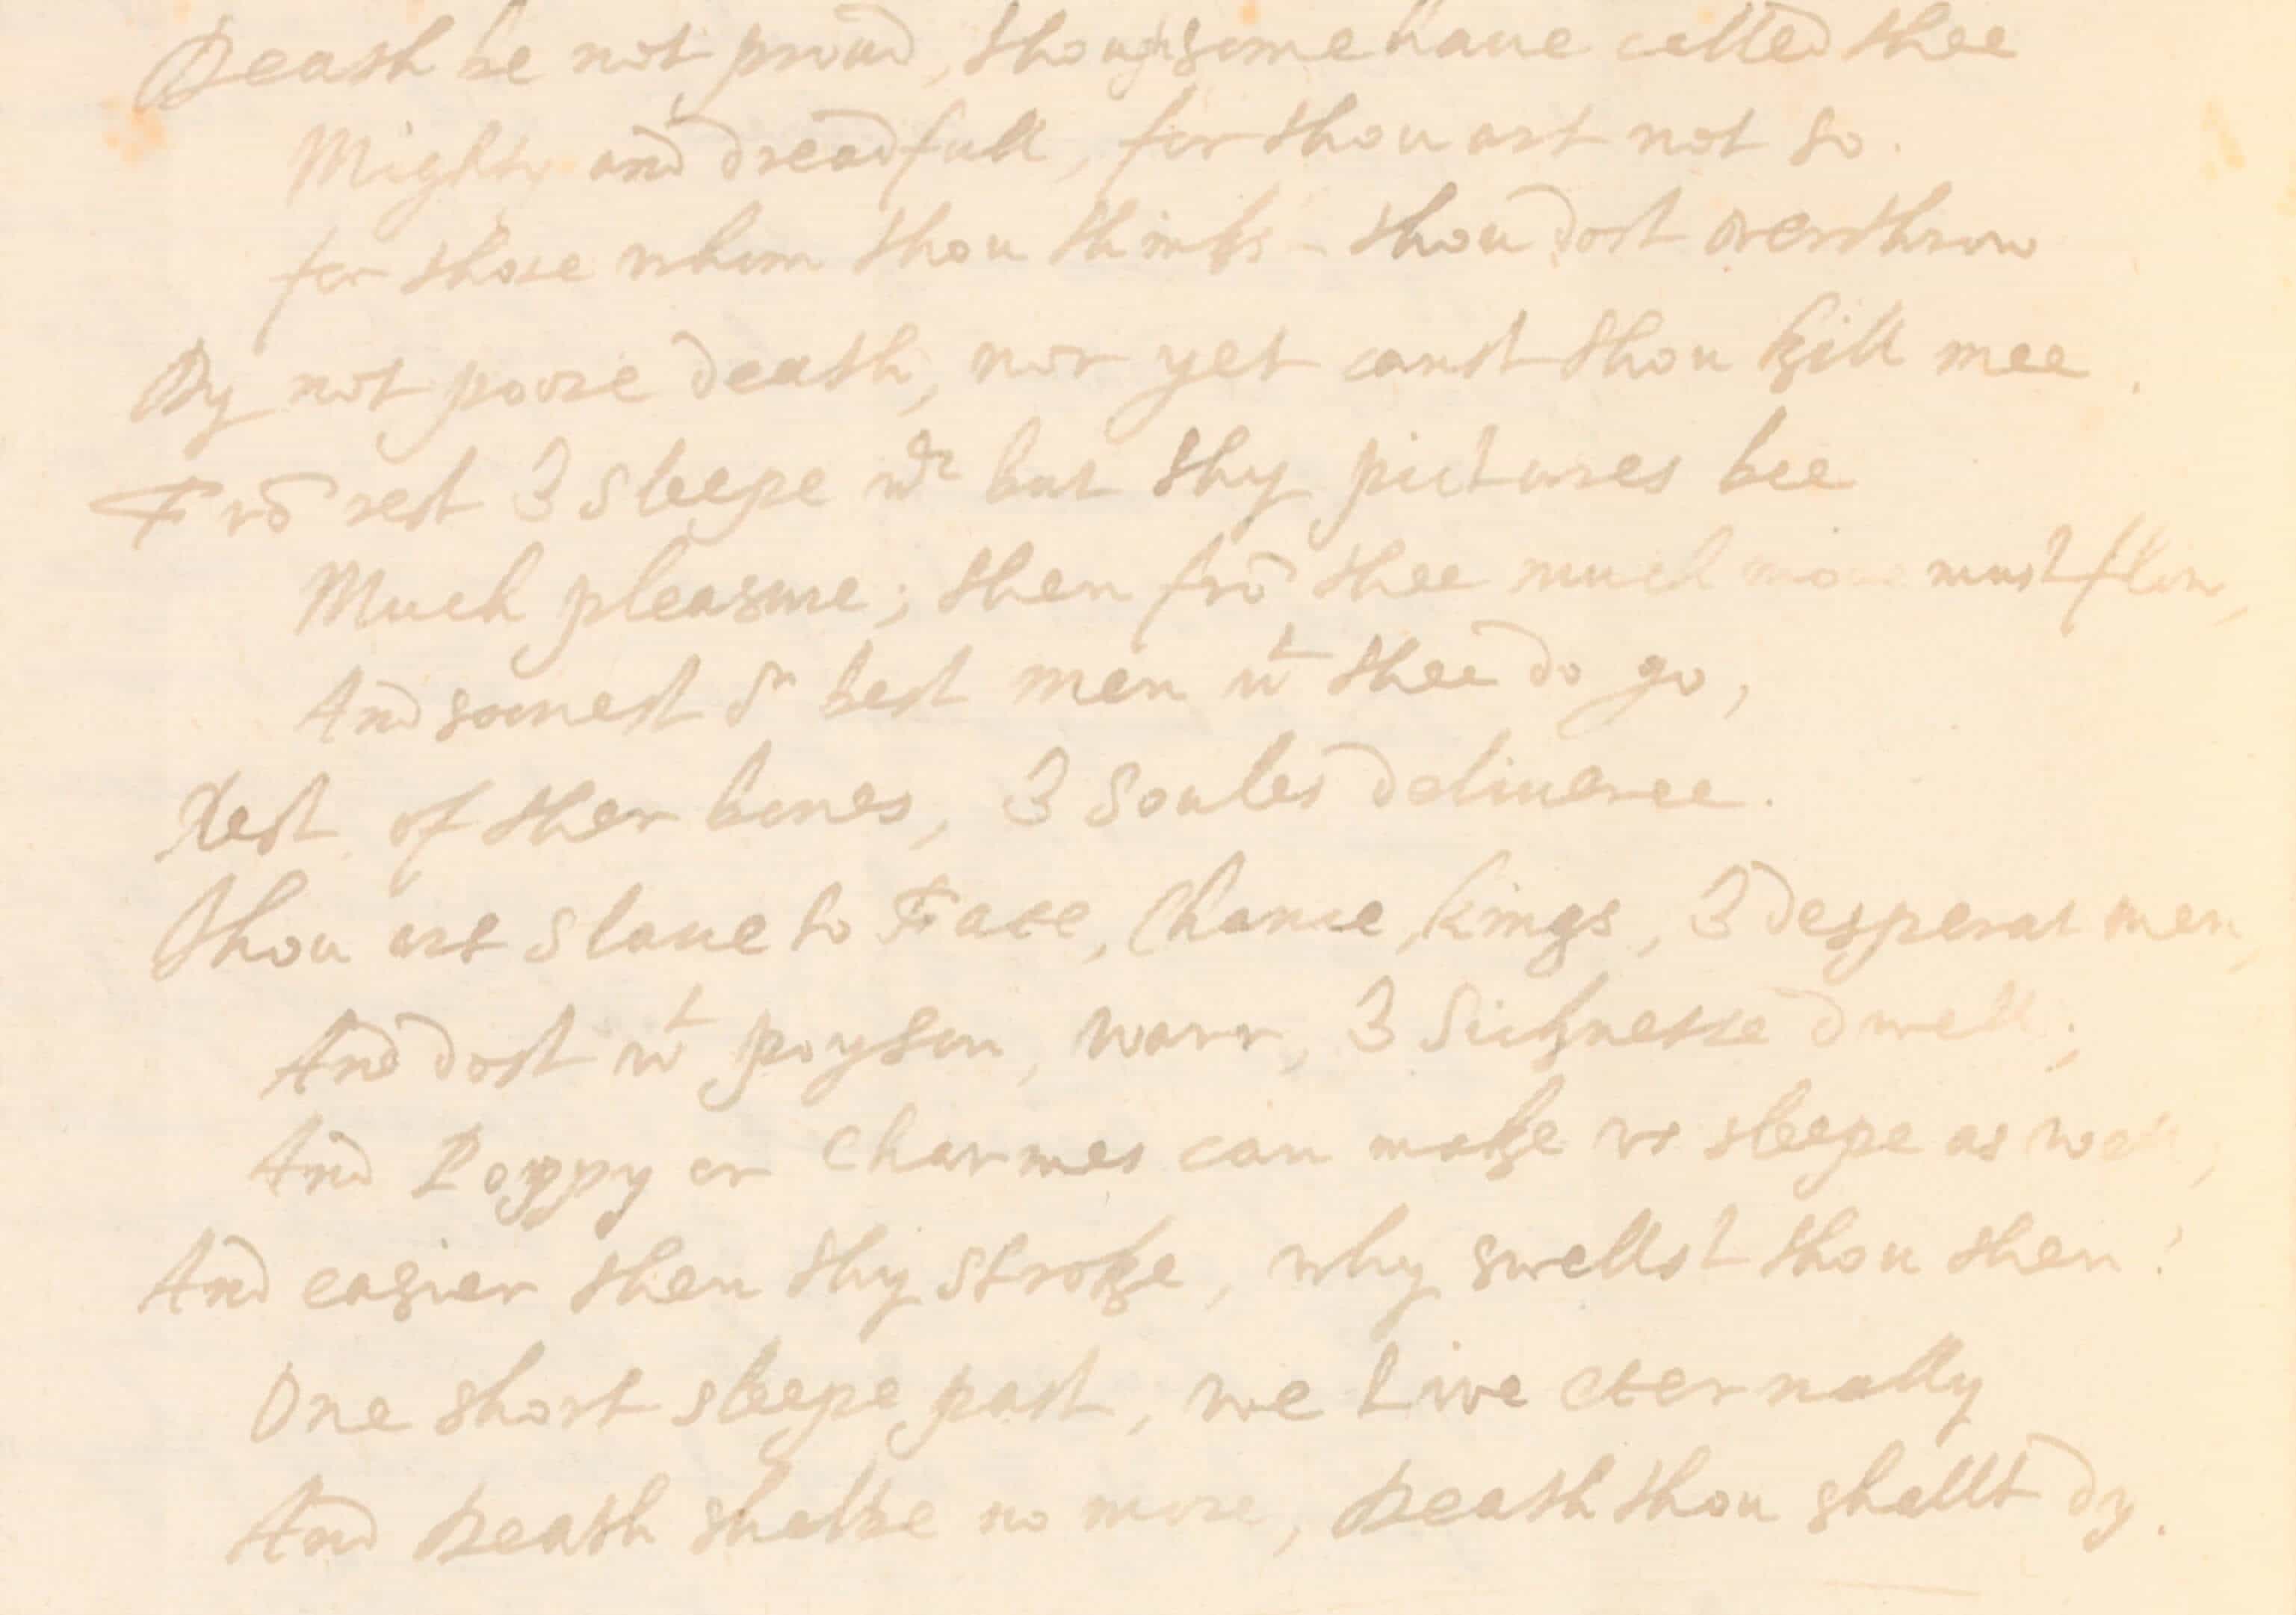 Death be not proud, though some haue called thee
Mighty and dreadfull, for thou art not so.
for those whom thou thinks - thou dost overthrow
Dy not poore death, nor yet canst thou kill mee.
Frō rest & sleepe wch but thy pictures bee
Much pleasure; then frō thee much more must flow,
And soonest or best men wt thee do go,
Rest of ther bones, & Soules deliueree.
Thou art slaue to Fate, Chance, kings, & desperat men,
And dost wt poyson, warr, & Sicknesse dwell;
And Poppy or Charmes can make vs sleepe as well,
And easier then thy stroke, why swellst thou then?
One short sleepe past, we Live eternally
And Death shalbe no more, Death thou shallt dy.